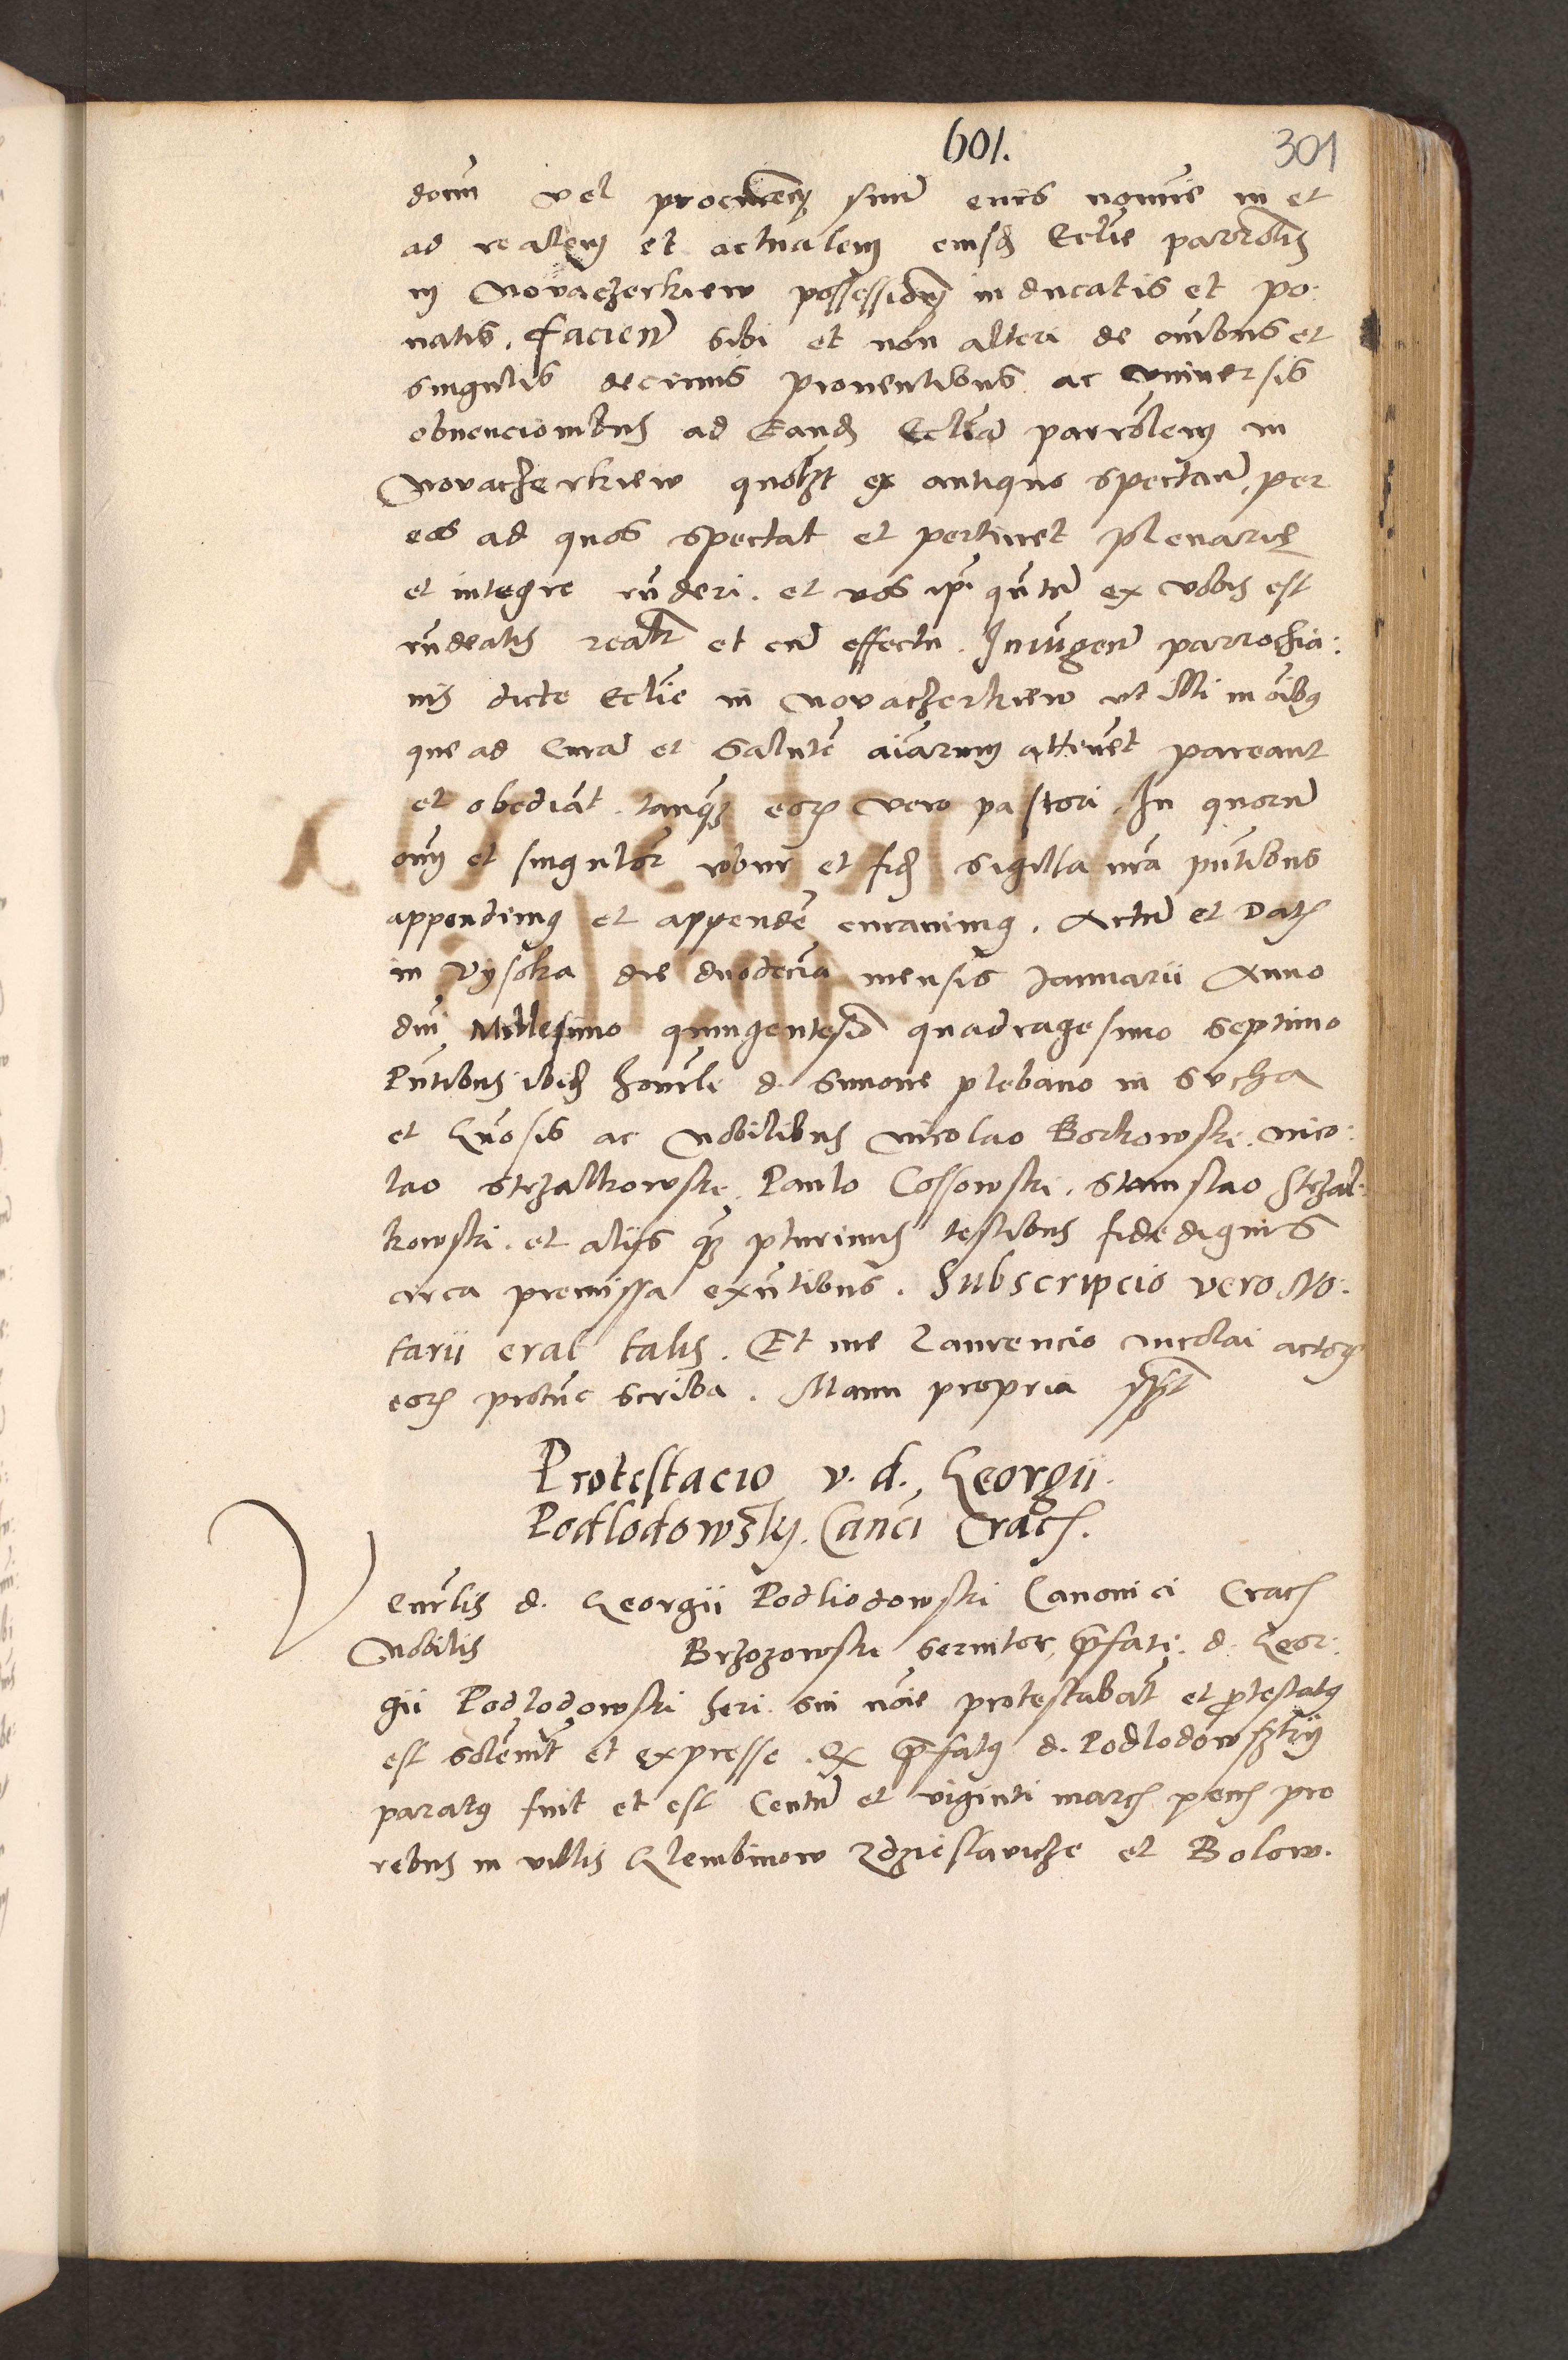 601. 301
dorem vel procuratorem suum eius nomine in et
ad realem et actualem eiusdem Ecclesie parrochialis
in Novaczerkiew possessionem inducatis et po:
natis. Facientes sibi et non alteri de omnibus et
singulis decimis proventibus ac universis
obvencionibus ad Eandem Eccliam parrochialem in
Novaczerkiew quomodolibet ex antiquo spectantibus, per
eos ad quos spectat et pertinet plenarie
et integre rnderi. et vos ipi quantum ex vobis est
rndeatis realiter et cum effectu. Iniungentes parrochia:
nis dicte Ecclie in Novaczerkiew ut illi in oibus
que ad Curam et Salutem aiarum attinet pareant
et obediant tanquam eorum vero pastori. In quorum
omnium et singulorum robur et fidem sigilla nra pntibus
appendimus et appendi curavimus. Actum et Datum
in Vysoka die duodecima mensis Januarii Anno
dni Millesimo quingentesimo quadragesimo septimo
Pntibus ibidem honorabili d. Simone plebano in Sucha
et Generosis ac Nobilibus Nicolao Borkowski. Nico:
lao Strzalkowski. Paulo Cossowski. Stanislao Strzal:
kowski. et aliis quam plurimis testibus fide dignis
circa premissa existentibus. Subscripcio vero No:
tarii erat talis. Et me Laurencio Nicolai actorum
eorum protunc scriba. Manu propria
Protestacio v. d. Georgii
Podlodowsky. Canci Crac.
Venerabilis d. Georgii Podliodowski Canonici Crac
Nobilis Brzozowski servitor, prefati. d. Geor:
gii Podlodowski heri sui noie protestabatur et protestatus
est solemniter et expresse. Quia prefatus d. Podlodowszky
paratus fuit et est Centum et viginti marcas pecunie pro
rebus in villis Klembinow Zdzieslavicze et Bolow.